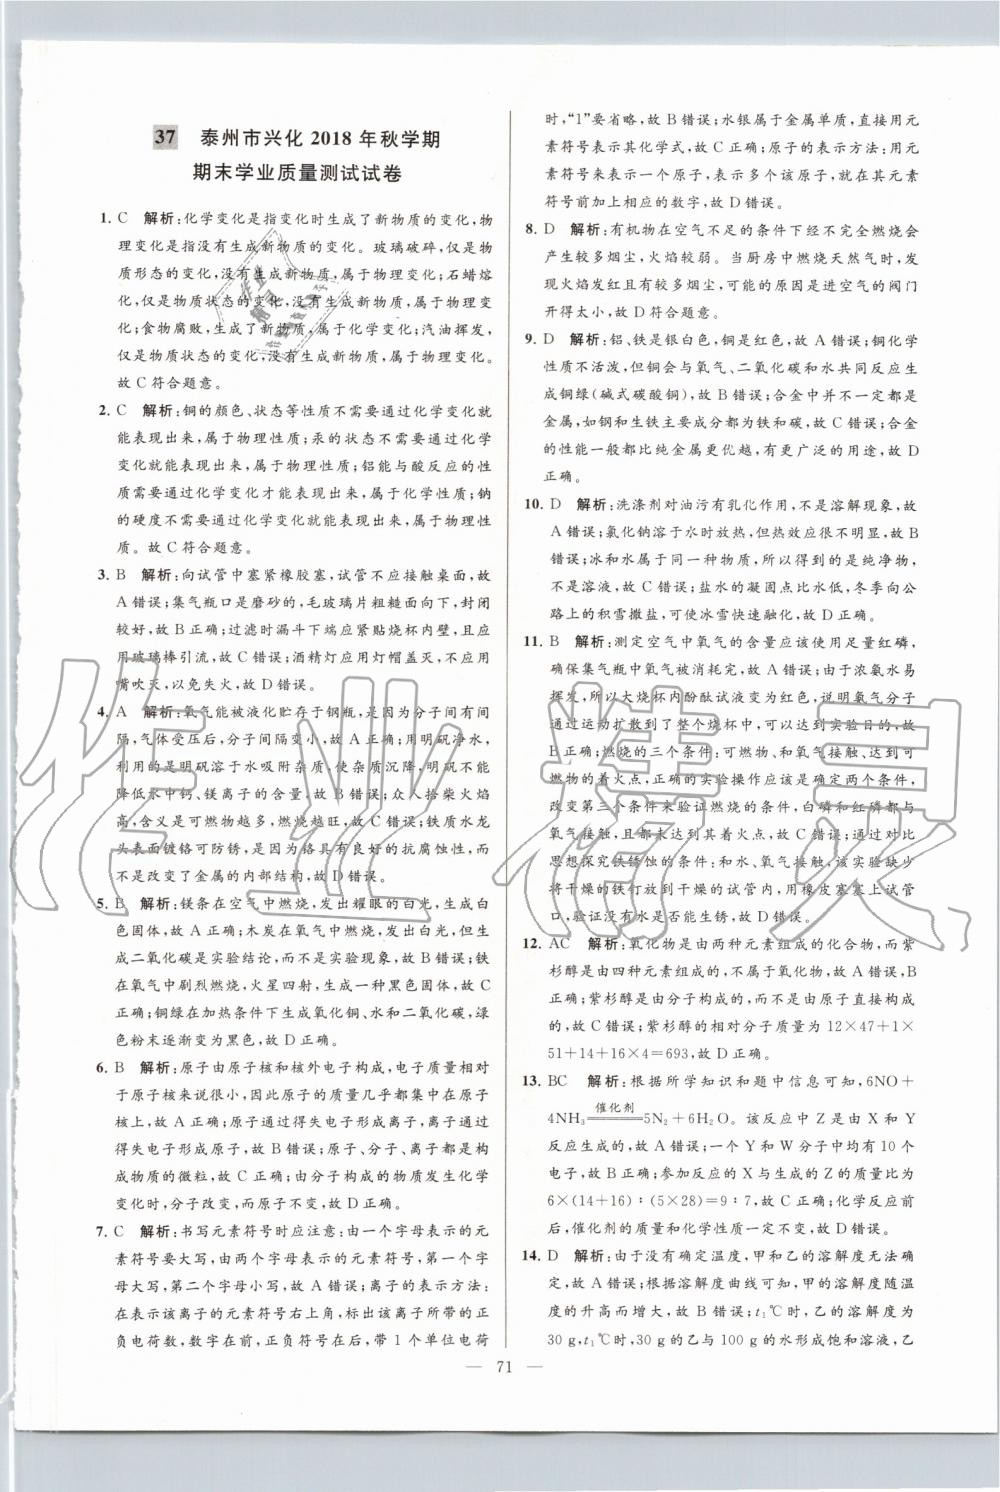 37 泰州市兴化 2018 年秋学期
期末学业质量测试试卷
1. C 解析:化学变化是指变化时生成了新物质的变化,物
理变化是指没有生成新物质的变化。玻璃破碎,仅是物
质形态的变化,没有生成新物质,属于物理变化;石蜡熔
化,仅是物质状态的变化,没有生成新物质,属于物理变
化;食物腐败,生成了新物质,属于化学变化;汽油挥发,
仅是物质状态的变化,没有生成新物质,属于物理变化。
故 C 符合题意。
2. C 解析:铜的颜色、状态等性质不需要通过化学变化就
能表现出来,属于物理性质;汞的状态不需要通过化学
变化就能表现出来,属于物理性质;铝能与酸反应的性
质需要通过化学变化才能表现出来,属于化学性质;钠
的硬度不需要通过化学变化就能表现出来,属于物理性
质。故 C 符合题意。
3. B 解析:向试管中塞紧橡胶塞,试管不应接触桌面,故
A 错误;集气瓶口是磨砂的,毛玻璃片粗糙面向下,封闭
较好,故 B 正确;过滤时漏斗下端应紧贴烧杯内壁,且应
用玻璃棒引流,故 C 错误;酒精灯应用灯帽盖灭,不应用
嘴吹灭,以免失火,故 D 错误。
4. A 解析:氧气能被液化贮存于钢瓶,是因为分子间有间
隔,气体受压后,分子间隔变小,故 A 正确;用明矾净水,
利用的是明矾溶于水吸附杂质,使杂质沉降,明矾不能
降低水中钙、镁离子的含量,故 B 错误;众人拾柴火焰
高,含义是可燃物越多,燃烧越旺,故 C 错误;铁质水龙
头表面镀铬可防锈,是因为铬具有良好的抗腐蚀性,而
不是改变了金属的内部结构,故 D 错误。
5. B 解析:镁条在空气中燃烧,发出耀眼的白光,生成白
色固体,故 A 正确;木炭在氧气中燃烧,发出白光,但生
成二氧化碳是实验结论,而不是实验现象,故 B 错误;铁
在氧气中剧烈燃烧,火星四射,生成一种黑色固体,故 C
正确;铜绿在加热条件下生成氧化铜、水和二氧化碳,绿
色粉末逐渐变为黑色,故 D 正确。
6. B 解析:原子由原子核和核外电子构成,电子质量相对
于原子核来说很小,因此原子的质量几乎都集中在原子
核上,故 A 正确;原子通过得失电子形成离子,离子也通
过得失电子形成原子,故 B 错误;原子、分子、离子都是构成
物质的微粒,故 C 正确;由分子构成的物质发生化学
变化时,分子改变,而原子不变,故 D 正确。
7. C 解析:书写元素符号时应注意:由一个字母表示的元
素符号要大写,由两个字母表示的元素符号,第一个字
母大写,第二个字母小写,故 A 错误;离子的表示方法:
在表示该离子的元素符号右上角,标出该离子所带的正
负电荷数,数字在前,正负符号在后,带 1 个单位电荷
时,“1”要省略,故 B 错误;水银属于金属单质,直接用元
素符号表示其化学式,故 C 正确;原子的表示方法:用元
素符号来表示一个原子,表示多个该原子,就在其元素
符号前加上相应的数字,故 D 错误。
8. D 解析:有机物在空气不足的条件下经不完全燃烧会
产生较多烟尘,火焰较弱。当厨房中燃烧天然气时,发
现火焰发红且有较多烟尘,可能的原因是进空气的阀门
开得太小,故 D 符合题意。
9. D 解析:铝、铁是银白色,铜是红色,故 A 错误;铜化学
性质不活泼,但铜会与氧气、二氧化碳和水共同反应生
成铜绿(碱式碳酸铜),故 B 错误;合金中并不一定都是
金属,如钢和生铁主要成分都为铁和碳,故 C 错误;合金
的性能一般都比纯金属更优越,有更广泛的用途,故 D
正确。
10. D 解析:洗涤剂对油污有乳化作用,不是溶解现象,故
A 错误;氯化钠溶于水时放热,但热效应很不明显,故 B
错误;冰和水属于同一种物质,所以得到的是纯净物,
不是溶液,故 C 错误;盐水的凝固点比水低,冬季向公
路上的积雪撒盐,可使冰雪快速融化,故 D 正确。
11. B 解析:测定空气中氧气的含量应该使用足量红磷,
确保集气瓶中氧气被消耗完,故 A 错误;由于浓氨水易
挥发,所以大烧杯内酚酞试液变为红色,说明氨气分子
通过运动扩散到了整个烧杯中,可以达到实验目的,故
B 正确;燃烧的三个条件:可燃物、和氧气接触、达到可
燃物的着火点,正确的实验操作应该是确定两个条件,
改变第三个条件来验证燃烧的条件,白磷和红磷都与
氧气接触,且都未达到其着火点,故 C 错误;通过对比
思想探究铁锈蚀的条件:和水、氧气接触,该实验缺少
将干燥的铁钉放到干燥的试管内,用橡皮塞塞上试管
口,验证没有水是否能生锈,故 D 错误。
12. AC 解析:氧化物是由两种元素组成的化合物,而紫
杉醇是由四种元素组成的,不属于氧化物,故 A 错误,B
正确;紫杉醇是由分子构成的,而不是由原子直接构成
的,故 C 错误;紫杉醇的相对分子质量为 12×47+1×
51+14+16×4=693,故 D 正确。
13. BC 解析:根据所学知识和题中信息可知,6NO+
4NH₃ 催化剂 5N₂+6H₂O。该反应中 Z 是由 X 和 Y
反应生成的,故 A 错误;一个 Y 和 W 分子中均有 10 个
电子,故 B 正确;参加反应的 X 与生成的 Z 的质量比为
6×(14+16)∶(5×28)=9∶7,故 C 正确;化学反应前
后,催化剂的质量和化学性质一定不变,故 D 错误。
14. D 解析:由于没有确定温度,甲和乙的溶解度无法确
定,故 A 错误;根据溶解度曲线可知,甲的溶解度随温
度的升高而增大,故 B 错误;t₁℃时,乙的溶解度为
30 g,t₁℃时,30 g 的乙与 100 g 的水形成饱和溶液,乙
— 71 —
作业精灵